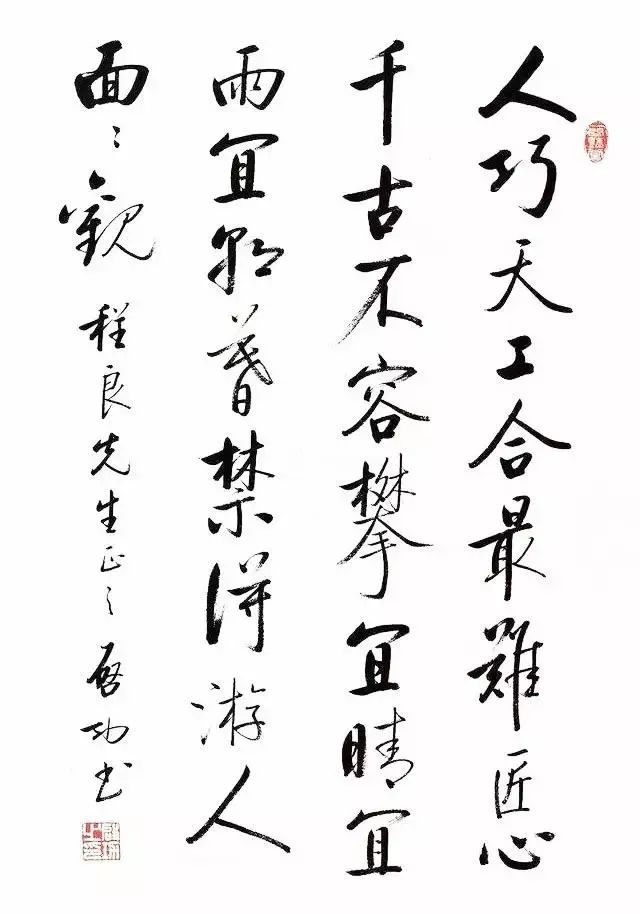 人巧天工合最難匠心
千古不容攀宜晴宜
雨宜朝暮禁得游人
面〻觀 程良先生正之 啓功书